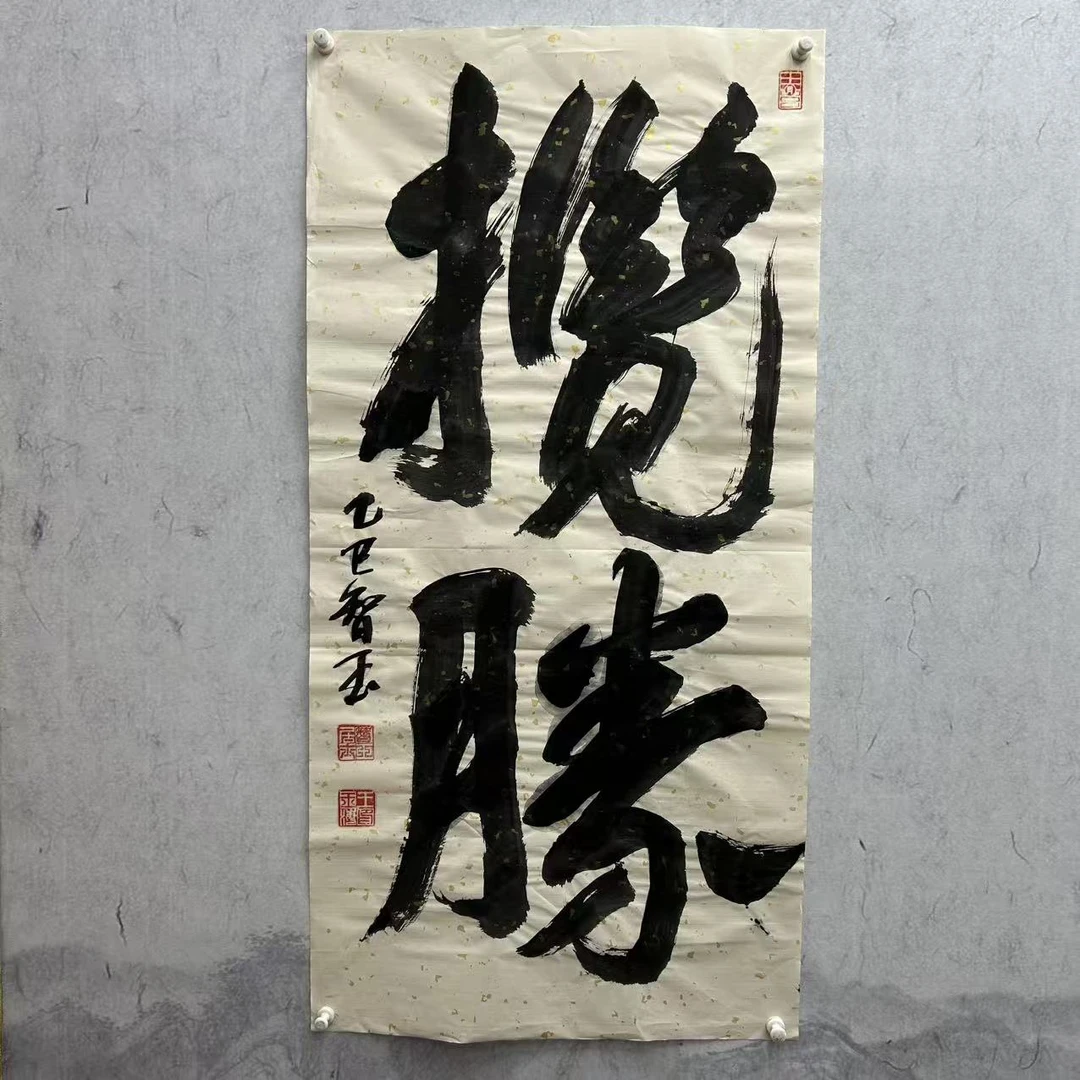 攬勝
乙巳智玉